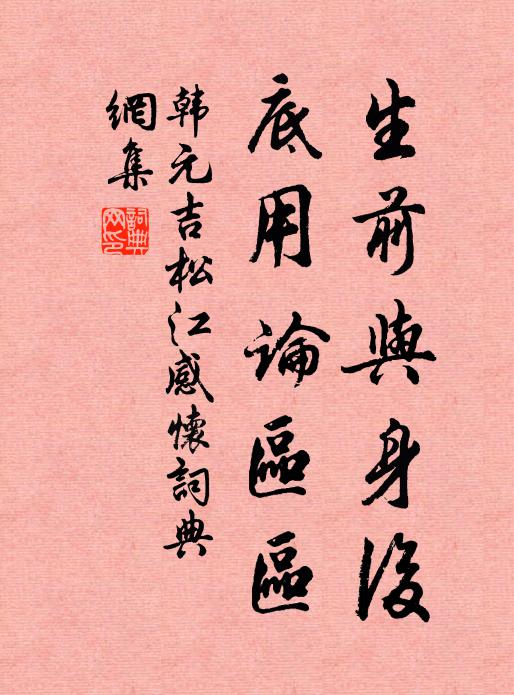 生前與身後
底用論區區
韩元吉松江感懷詞典
網集
詞典網印